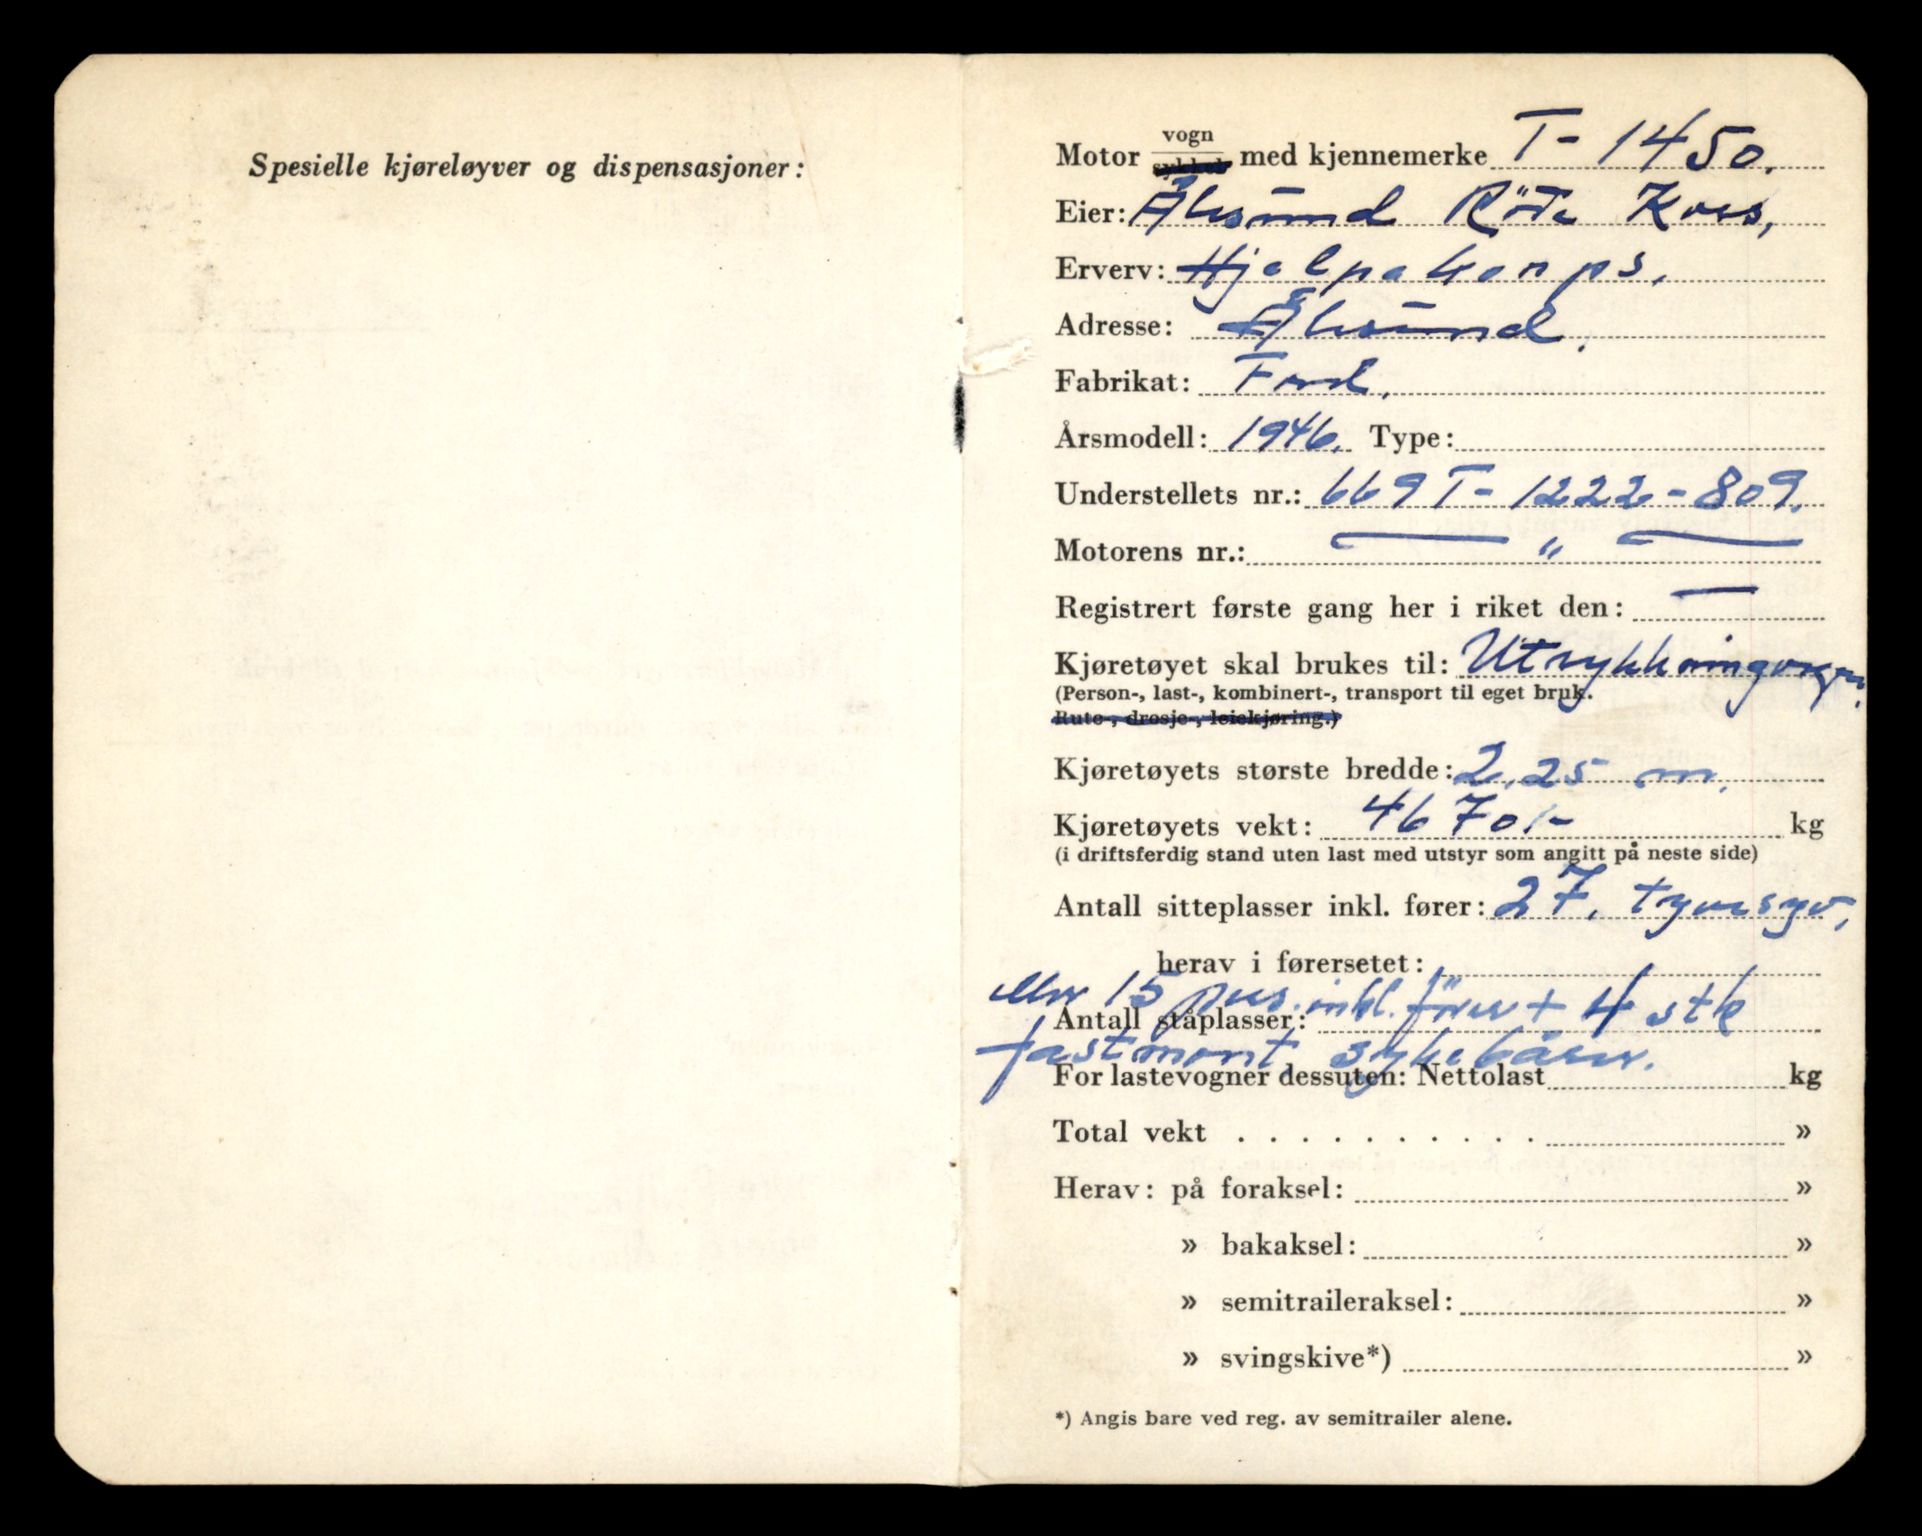 Spesielle kjøreløyver og dispensasjoner:
Motor vogn/sykkel med kjennemerke T-1450.
Eier: Ålesund Röde Kors,
Erverv: Hjelpekorps.
Adresse: Ålesund.
Fabrikat: Ford.
Årsmodell: 1946. Type:
Understellets nr.: 669T-1222-809.
Motorens nr.: — " —
Registrert første gang her i riket den: —
Kjøretøyet skal brukes til: Utrykkningvogn.
(Person-, last-, kombinert-, transport til eget bruk.
Rute-, drosje-, leiekjøring.)
Kjøretøyets største bredde: 2,25 m.
Kjøretøyets vekt: 4670/- kg
(i driftsferdig stand uten last med utstyr som angitt på neste side)
Antall sitteplasser inkl. fører: 27. tyvesyv,
herav i førersetet:
eller 15 pers. inkl. förer + 4 stk
Antall ståplasser:
fastmont. sykebårer.
For lastevogner dessuten: Nettolast kg
Total vekt . . . . . . . . . . . »
Herav: på foraksel: »
» bakaksel: »
» semitraileraksel: »
» svingskive*) »
*) Angis bare ved reg. av semitrailer alene.